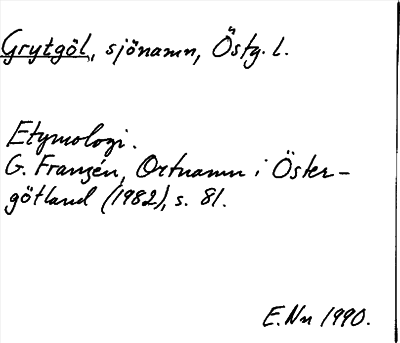 Grytgöl, sjönamn, Östg. l.
Etymologi.
G. Franzén, Ortnamn i Öster-
götland (1982), s. 81.
E.Nn 1990.